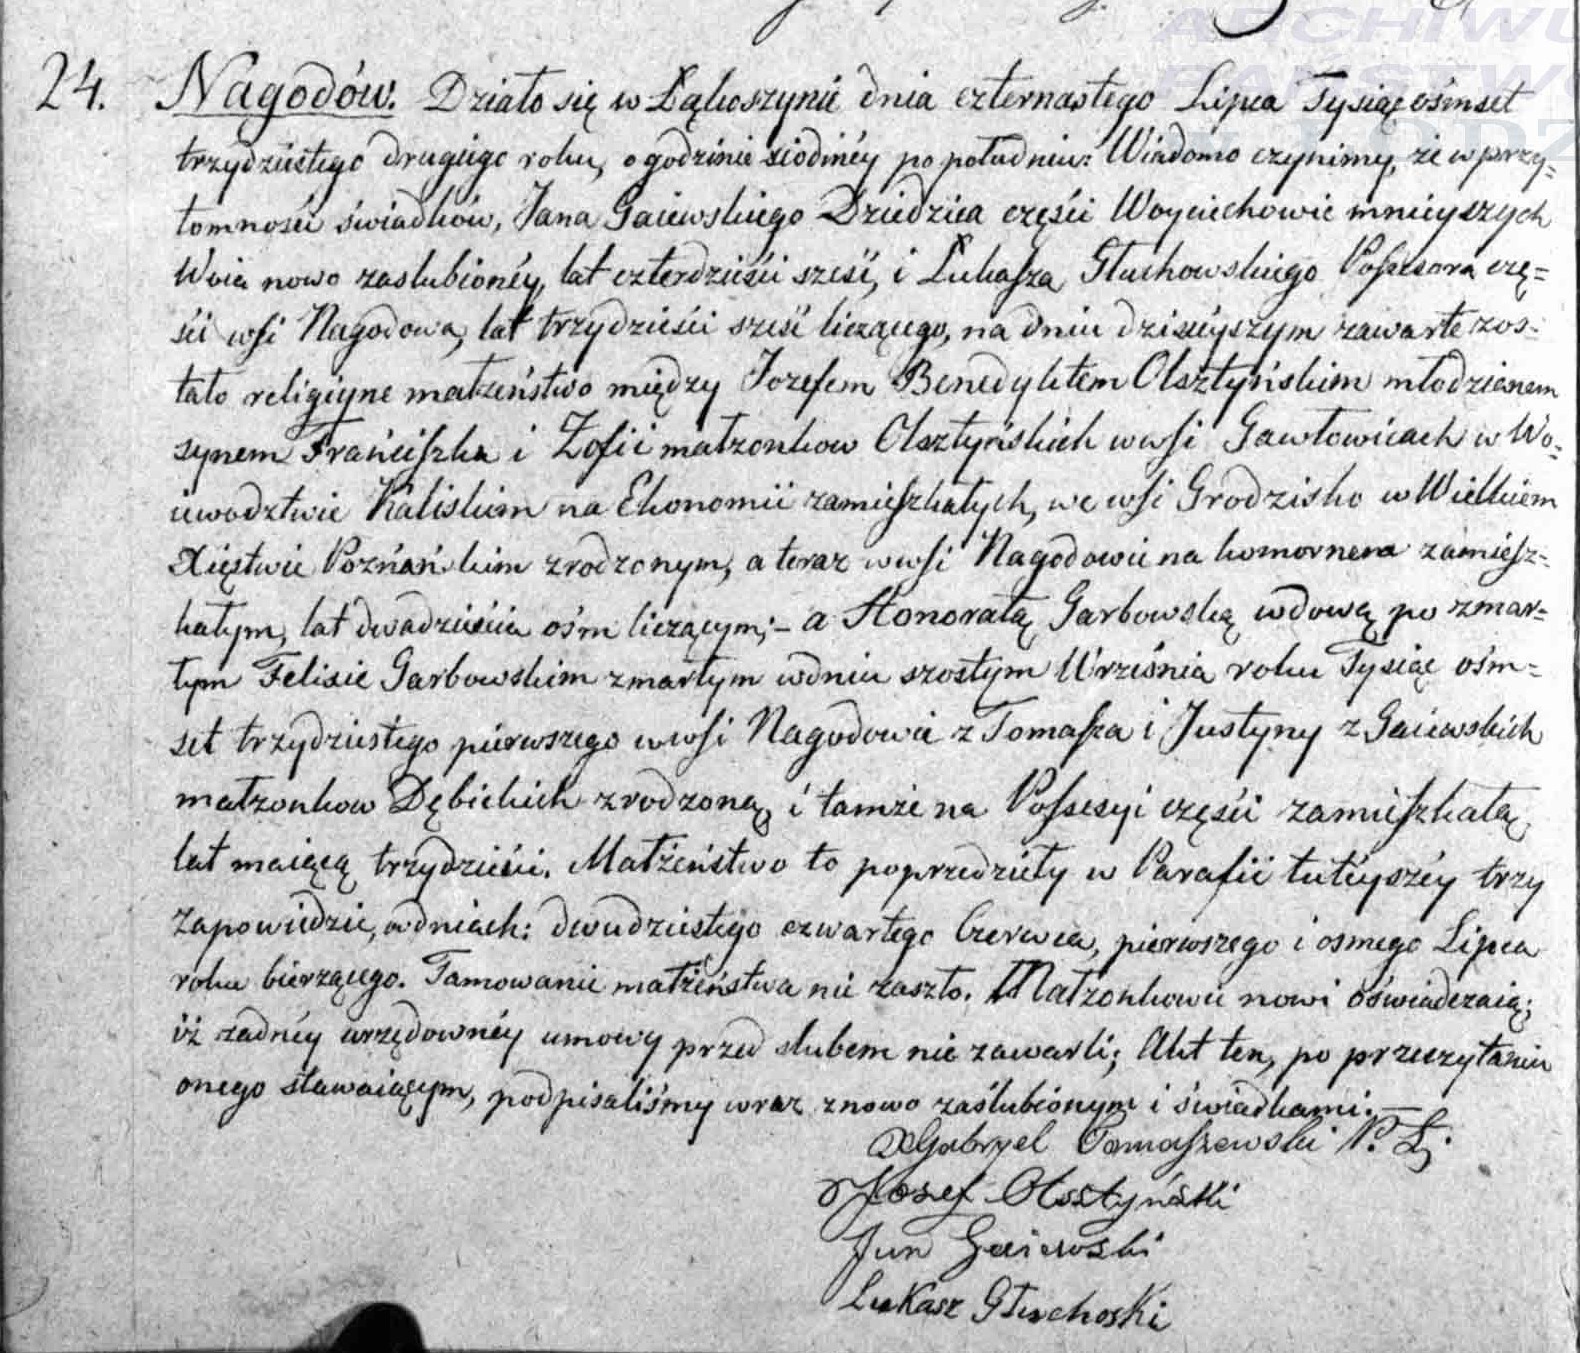 ARCHIWU
PAŃSTWO
ŁODZ
24. Nagodów. Działo się w Łąkoszynie dnia czternastego Lipca Tysiąc ośmset
trzydziestego drugiego roku, o godzinie siódméy po południu: Wiadomo czynimy, że w przy=
tomności świadków, Jana Gaiewskiego Dziedzica części Woyciechowic mnieyszych
Wuia nowo zaslubionéy, lat czterdzieści sześć, i Łukasza Głuchowskiego Possesora czę=
ści wsi Nagodowa, lat trzydzieści sześć liczącego, na dniu dzisieyszym zawarte zos=
tało religiyne małżeństwo między Jozefem Benedyktem Olsztyńskim młodzianem
synem Franciszka i Zofii małzonkow Olsztyńskich w wsi Gawłowicach w Wo=
iewodztwie Kaliskim na Ekonomii zamieszkałych, we wsi Grodzisko w Wielkiem
Xięstwie Poznańskim zrodzonym, a teraz w wsi Nagodowie na komornem zamiesz=
kałym, lat dwadzieścia ośm liczącym; – a Honoratą Garbowską wdową po zmar=
łym Felixie Garbowskim zmarłym w dniu szostym Września roku Tysiąc ośm=
set trzydziestego pierwszego w wsi Nagodowie z Tomasza i Justyny z Gaiewskich
małzonkow Dębickich zrodzoną, i tamże na Possesyi części zamieszkałą,
lat maiącą trzydzieści. Małżeństwo to poprzedziéły w Parafii tutéyszéy trzy
zapowiedzie, w dniach: dwudziestego czwartego Czerwca, pierwszego i osmego Lipca
roku bierzącego. Tamowanie małżeństwa nie zaszło. Małzonkowie nowi oświadczaią;
iż żadnéy urzędownéy umowy przed slubem nie zawarli; Akt ten, po przeczytaniu
onego stawaiącym, podpisaliśmy wraz z nowo zaślubionym i świadkami. –
X Gabryel Tomaszewski P. Ł.
Jozef Olsztyński
Jan Gaiewski
Łukasz Głuchoski